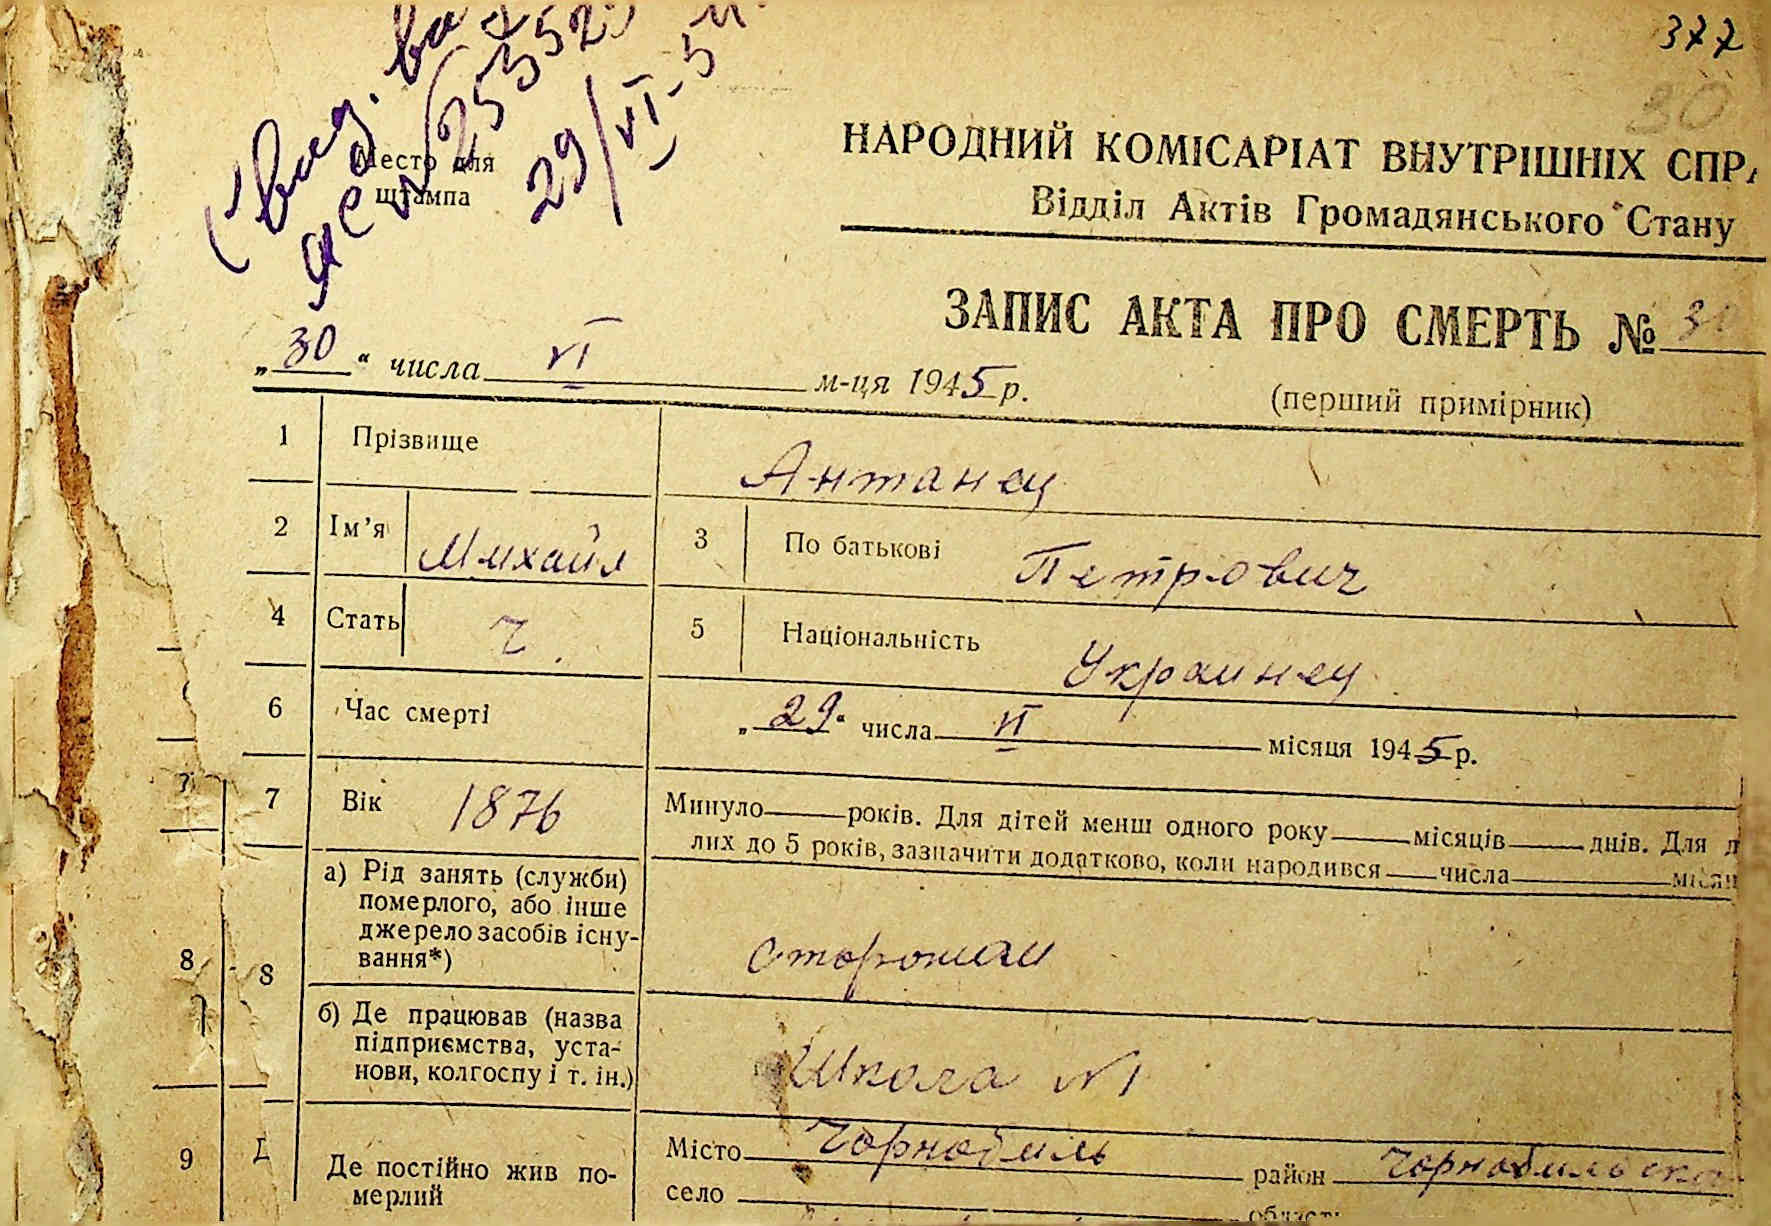 377
30
НАРОДНИЙ КОМІСАРІАТ ВНУТРІШНІХ СПРА
Відділ Актів Громадянського Стану
Место для
штампа
29/VI-54.
ЗАПИС АКТА ПРО СМЕРТЬ №
„30“ числа VI м-ця 1945 р.
(перший примірник)
1 Прізвище Антанец
2 Ім’я Михаил 3 По батькові Петрович
4 Стать ч. 5 Національність Украинец
6 Час смерті „29“ числа VI місяця 1945 р.
7 Вік 1876 Минуло років. Для дітей менш одного року місяців днів. Для д
лих до 5 років, зазначити додатково, коли народився числа місяц
8 8 а) Рід занять (служби)
померлого, або інше
джерело засобів існу-
вання*)
сторожил
б) Де працював (назва
підприємства, уста-
нови, колгоспу і т. ін.)
Школа №1
9 Де постійно жив по-
мерлий
Місто Чорнобиль район Чорнобильско
село област